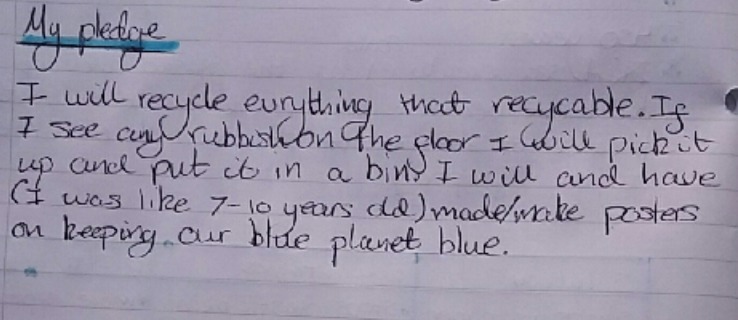 My pledge
I will recycle eurything that recycable. If
I see any rubbish on the floor I will pick it
up and put it in a bin. I will and have
(I was like 7-10 years old) made/make posters
on keeping our blue planet blue.